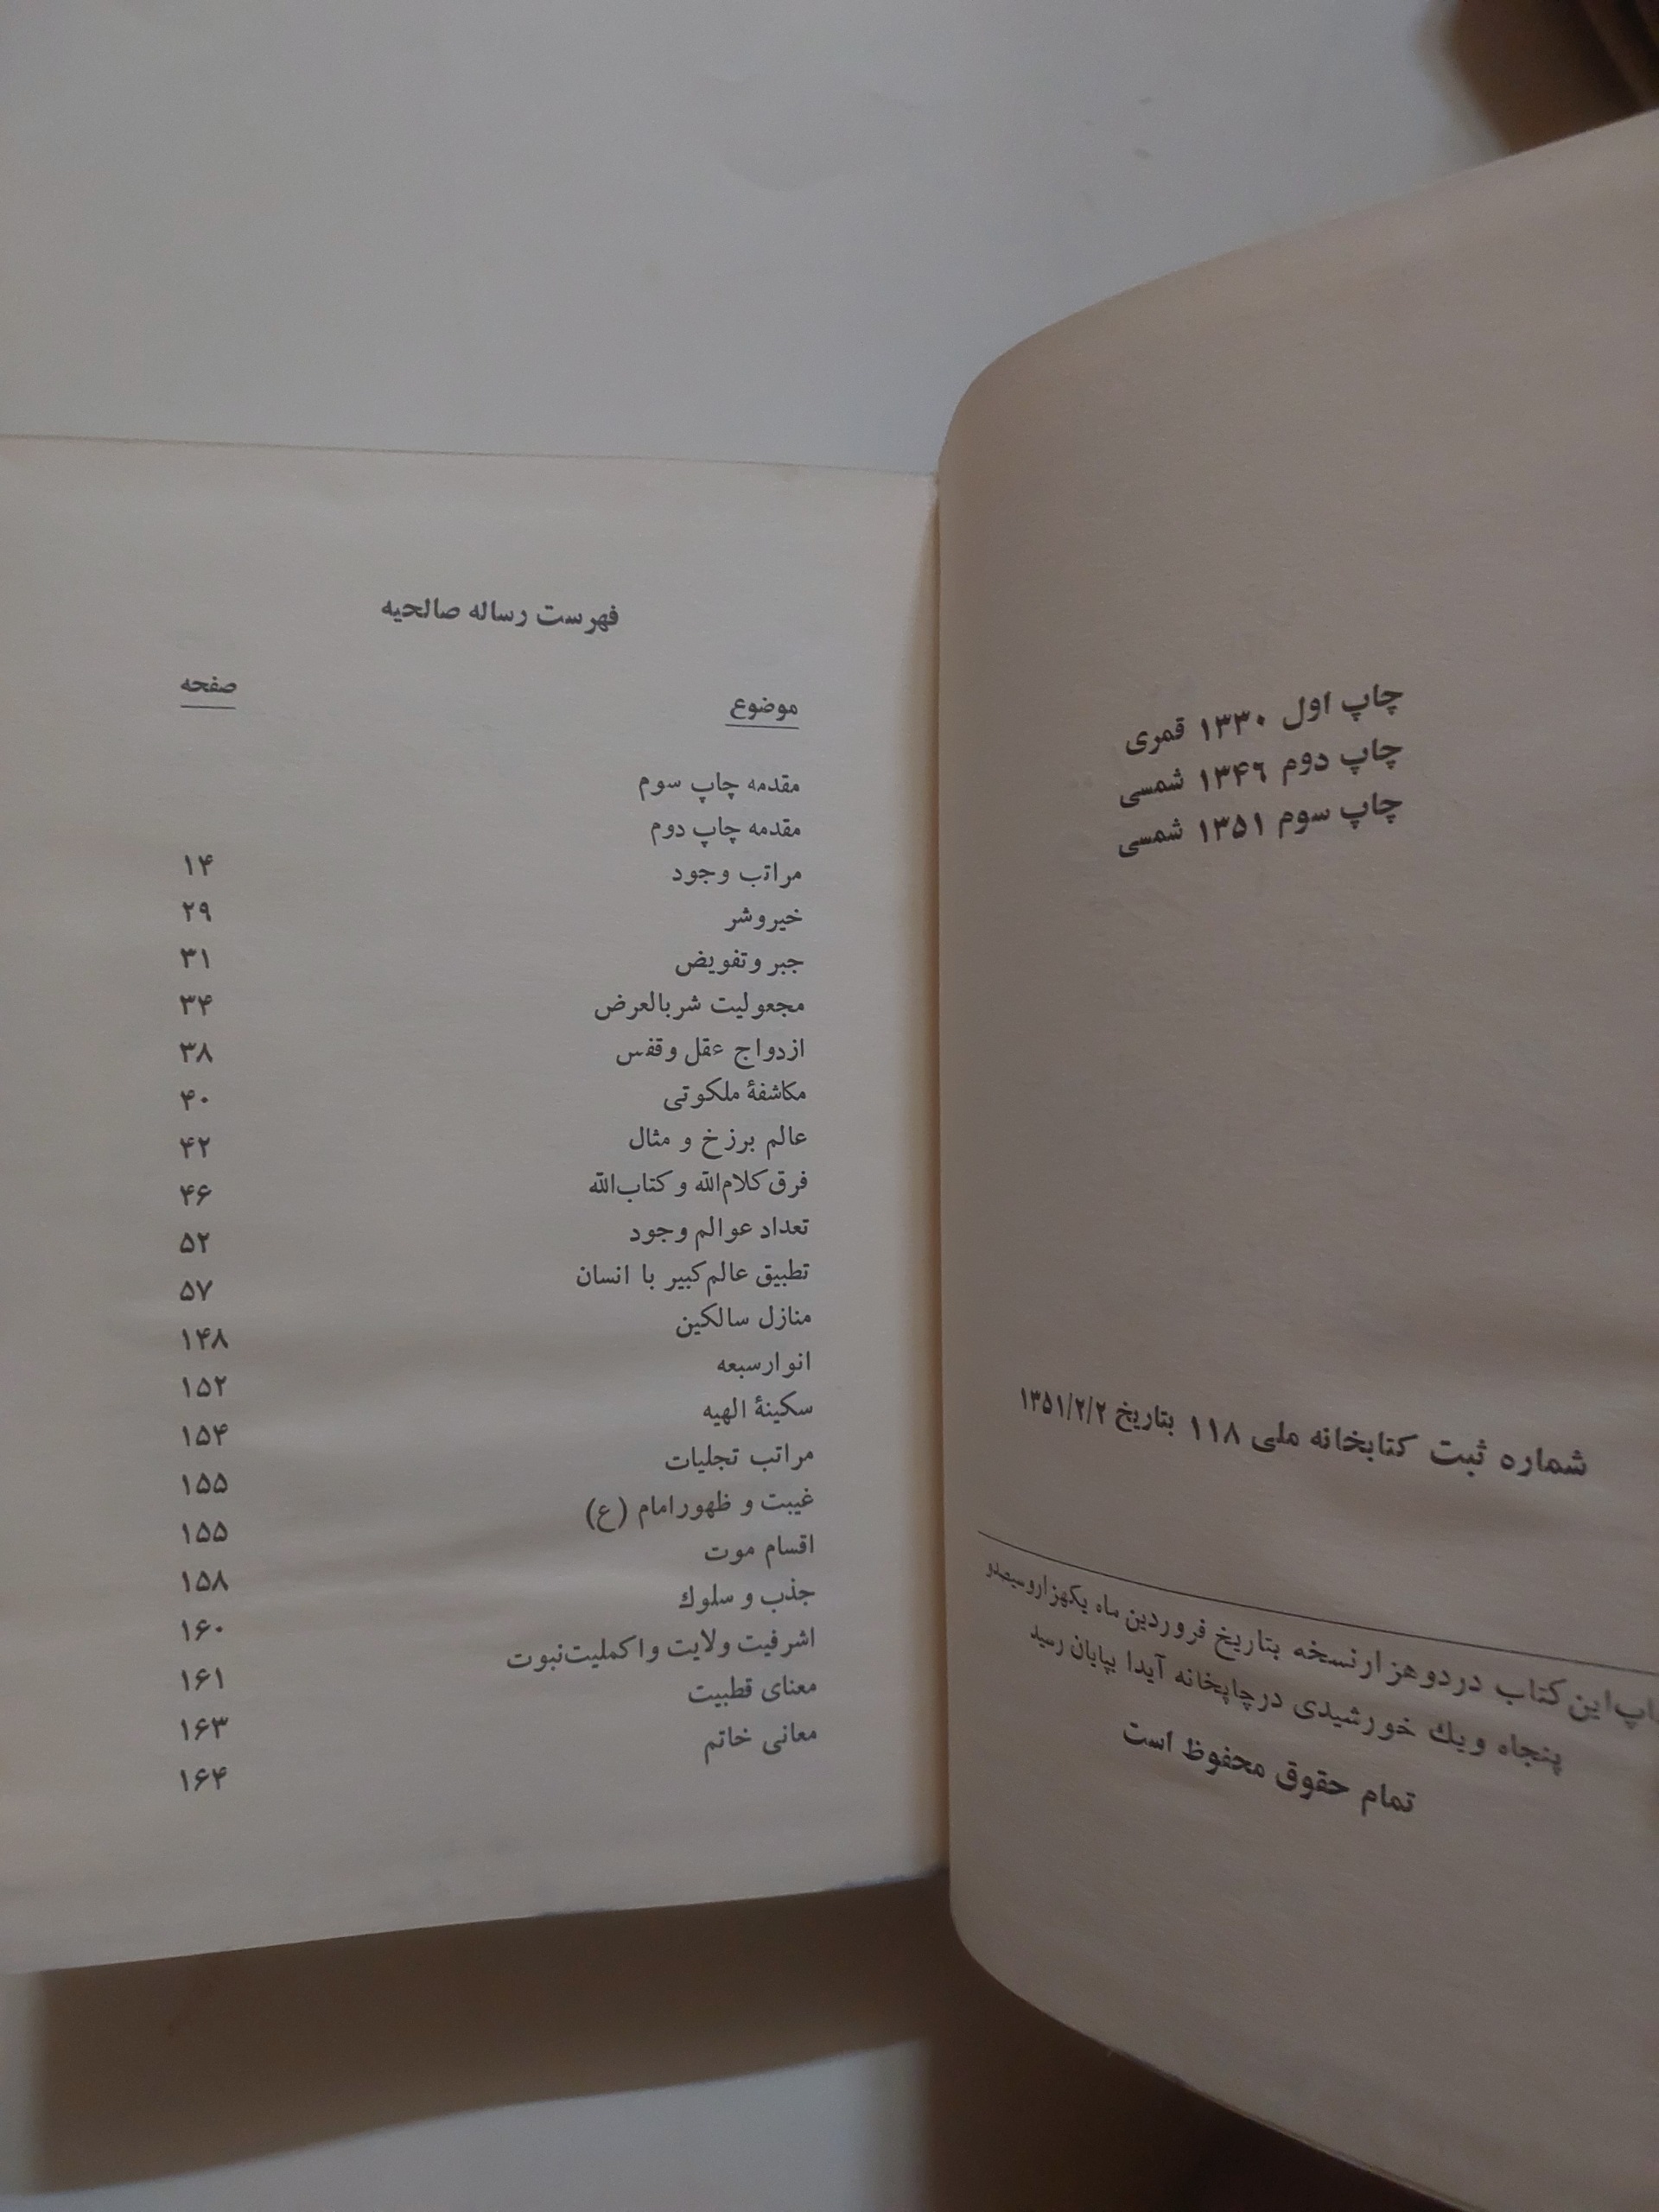 چاپ اول ۱۳۳۰ قمری
چاپ دوم ۱۳۴۶ شمسی
چاپ سوم ۱۳۵۱ شمسی
شماره ثبت کتابخانه ملی ۱۱۸ بتاریخ ۱۳۵۱/۲/۲
این کتاب در دوهزار نسخه بتاریخ فروردین ماه یکهزاروسیصدو
پنجاه ویك خورشیدی درچاپخانه آیدا بپایان رسید
تمام حقوق محفوظ است
فهرست رساله صالحیه
موضوع صفحه
مقدمه چاپ سوم
مقدمه چاپ دوم
مراتب وجود ۱۴
خیروشر ۲۹
جبر وتفویض ۳۱
مجعولیت شربالعرض ۳۴
ازدواج عقل وقفس ۳۸
مکاشفهٔ ملکوتی ۴۰
عالم برزخ و مثال ۴۲
فرق کلام‌الله و کتاب‌الله ۴۶
تعداد عوالم وجود ۵۲
تطبیق عالم کبیر با انسان ۵۷
منازل سالکین ۱۴۸
انوارسبعه ۱۵۲
سکینهٔ الهیه ۱۵۴
مراتب تجلیات ۱۵۵
غیبت و ظهورامام (ع) ۱۵۵
اقسام موت ۱۵۸
جذب و سلوك ۱۶۰
اشرفیت ولایت واکملیت‌نبوت ۱۶۱
معنای قطبیت ۱۶۳
معانی خاتم ۱۶۴